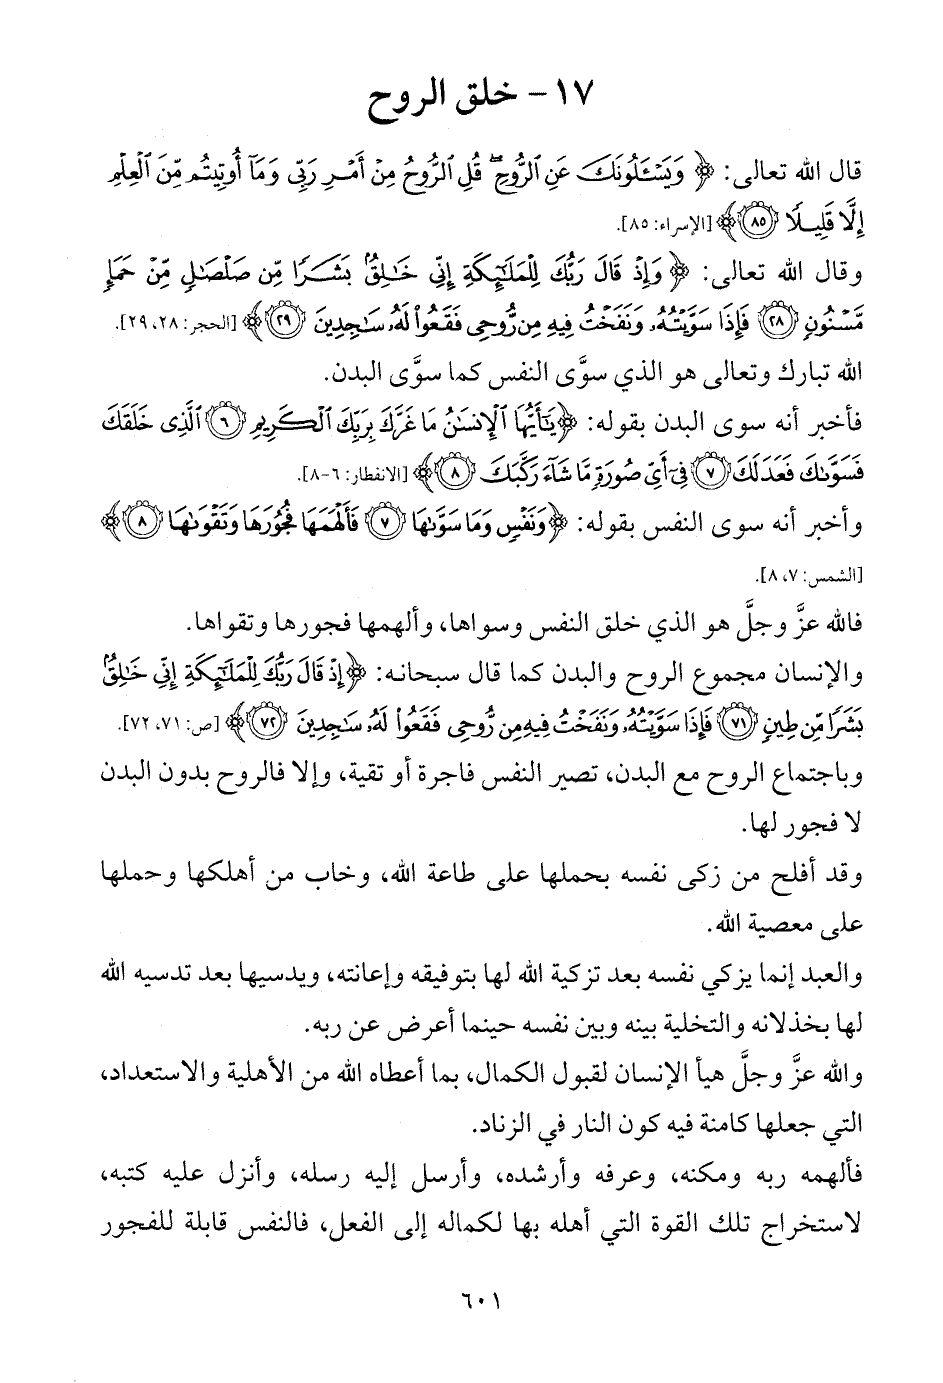 ١٧ - خلق الروح
قال الله تعالى: ﴿وَيَسْـَٔلُونَكَ عَنِ ٱلرُّوحِۖ قُلِ ٱلرُّوحُ مِنْ أَمْرِ رَبِّى وَمَآ أُوتِيتُم مِّنَ ٱلْعِلْمِ
إِلَّا قَلِيلًا ٨٥﴾ [الإسراء: ٨٥].
وقال الله تعالى: ﴿وَإِذْ قَالَ رَبُّكَ لِلْمَلَـٰٓئِكَةِ إِنِّى خَـٰلِقٌۢ بَشَرًا مِّن صَلْصَـٰلٍ مِّنْ حَمَإٍ
مَّسْنُونٍ ٢٨ فَإِذَا سَوَّيْتُهُۥ وَنَفَخْتُ فِيهِ مِن رُّوحِى فَقَعُوا۟ لَهُۥ سَـٰجِدِينَ ٢٩﴾ [الحجر: ٢٨، ٢٩].
الله تبارك وتعالى هو الذي سوَّى النفس كما سوَّى البدن.
فأخبر أنه سوى البدن بقوله: ﴿يَـٰٓأَيُّهَا ٱلْإِنسَـٰنُ مَا غَرَّكَ بِرَبِّكَ ٱلْكَرِيمِ ٦ ٱلَّذِى خَلَقَكَ
فَسَوَّىٰكَ فَعَدَلَكَ ٧ فِىٓ أَىِّ صُورَةٍ مَّا شَآءَ رَكَّبَكَ ٨﴾ [الانفطار: ٦-٨].
وأخبر أنه سوى النفس بقوله: ﴿وَنَفْسٍ وَمَا سَوَّىٰهَا ٧ فَأَلْهَمَهَا فُجُورَهَا وَتَقْوَىٰهَا ٨﴾
[الشمس: ٧، ٨].
فالله عزَّ وجلَّ هو الذي خلق النفس وسواها، وألهمها فجورها وتقواها.
والإنسان مجموع الروح والبدن كما قال سبحانه: ﴿إِذْ قَالَ رَبُّكَ لِلْمَلَـٰٓئِكَةِ إِنِّى خَـٰلِقٌۢ
بَشَرًا مِّن طِينٍ ٧١ فَإِذَا سَوَّيْتُهُۥ وَنَفَخْتُ فِيهِ مِن رُّوحِى فَقَعُوا۟ لَهُۥ سَـٰجِدِينَ ٧٢﴾ [ص: ٧١، ٧٢].
وباجتماع الروح مع البدن، تصير النفس فاجرة أو تقية، وإلا فالروح بدون البدن
لا فجور لها.
وقد أفلح من زكى نفسه بحملها على طاعة الله، وخاب من أهلكها وحملها
على معصية الله.
والعبد إنما يزكي نفسه بعد تزكية الله لها بتوفيقه وإعانته، ويدسيها بعد تدسيه الله
لها بخذلانه والتخلية بينه وبين نفسه حينما أعرض عن ربه.
والله عزَّ وجلَّ هيأ الإنسان لقبول الكمال، بما أعطاه الله من الأهلية والاستعداد،
التي جعلها كامنة فيه كون النار في الزناد.
فألهمه ربه ومكنه، وعرفه وأرشده، وأرسل إليه رسله، وأنزل عليه كتبه،
لاستخراج تلك القوة التي أهله بها لكماله إلى الفعل، فالنفس قابلة للفجور
٦٠١